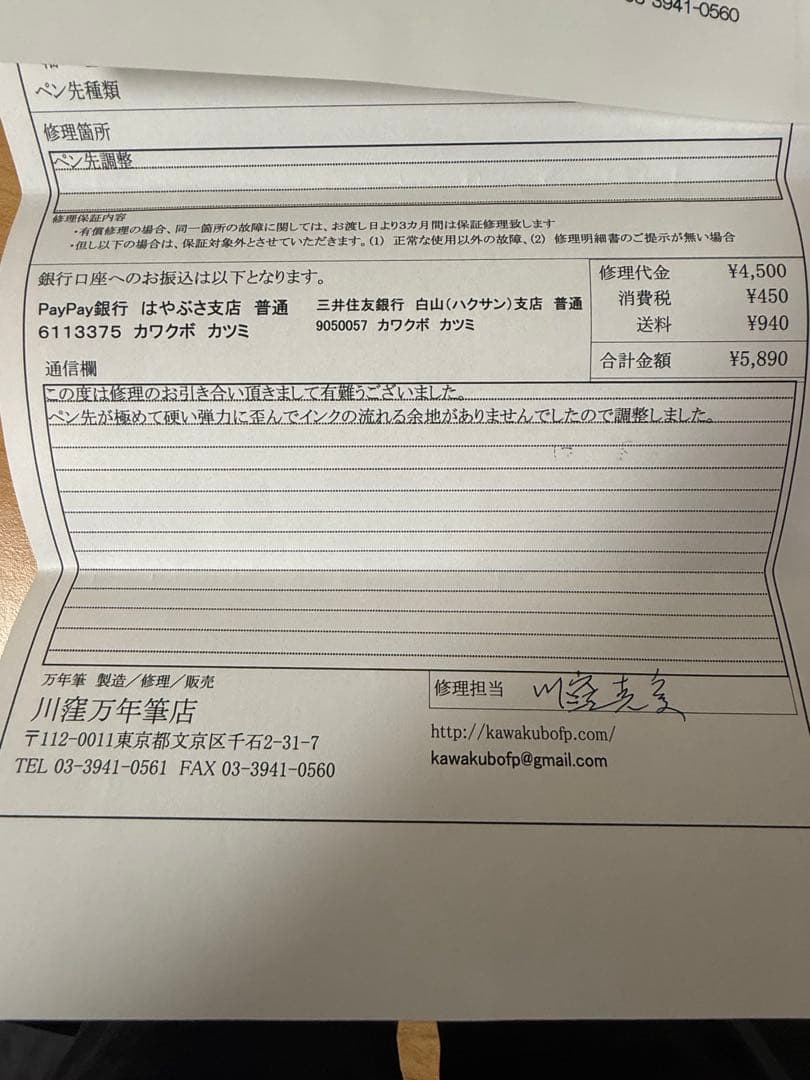 3941-0560
ペン先種類
修理箇所
ペン先調整
修理保証内容
・有償修理の場合、同一箇所の故障に関しては、お渡し日より3カ月間は保証修理致します
・但し以下の場合は、保証対象外とさせていただきます。(1) 正常な使用以外の故障、(2) 修理明細書のご提示が無い場合
銀行口座へのお振込は以下となります。
PayPay銀行 はやぶさ支店 普通
6113375 カワクボ カツミ
三井住友銀行 白山(ハクサン)支店 普通
9050057 カワクボ カツミ
修理代金 ¥4,500
消費税 ¥450
送料 ¥940
合計金額 ¥5,890
通信欄
この度は修理のお引き合い頂きまして有難うございました。
ペン先が極めて硬い弾力に歪んでインクの流れる余地がありませんでしたので調整しました。
万年筆 製造/修理/販売
川窪万年筆店
〒112-0011東京都文京区千石2-31-7
TEL 03-3941-0561 FAX 03-3941-0560
修理担当
http://kawakubofp.com/
kawakubofp@gmail.com